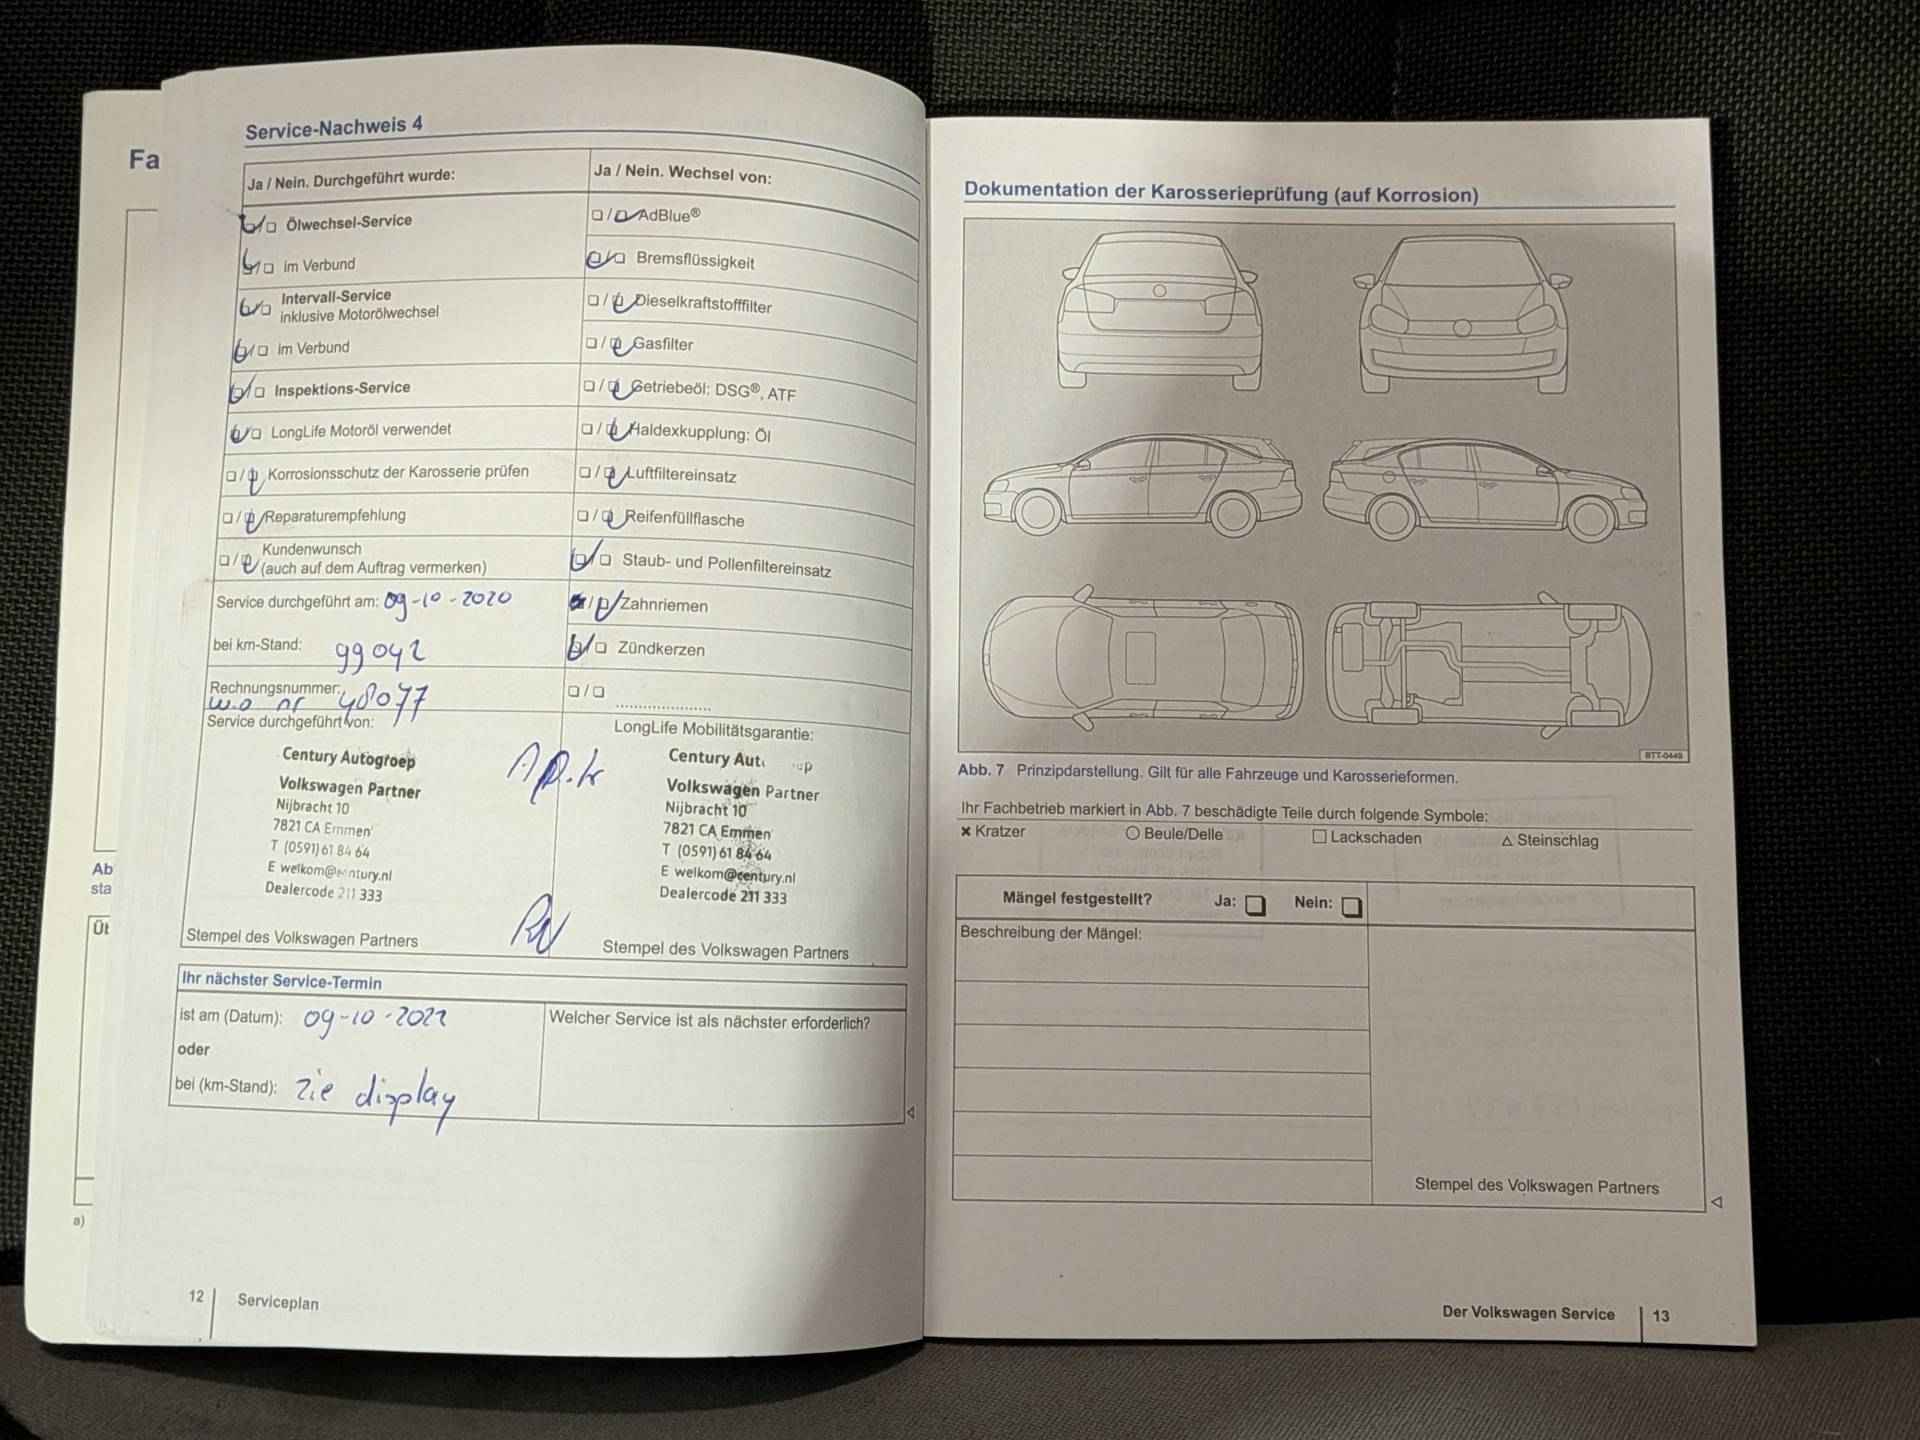 Fa
Ab
sta
Üt
a)
Service-Nachweis 4
Ja / Nein. Durchgeführt wurde:
Ölwechsel-Service
im Verbund
Intervall-Service
inklusive Motorölwechsel
im Verbund
Inspektions-Service
LongLife Motoröl verwendet
Korrosionsschutz der Karosserie prüfen
Reparaturempfehlung
Kundenwunsch
(auch auf dem Auftrag vermerken)
Service durchgeführt am: 09-10-2020
bei km-Stand: 99042
Rechnungsnummer:
w.o nr 48077
Service durchgeführt von:
Century Autogroep
Volkswagen Partner
Nijbracht 10
7821 CA Emmen
T (0591) 61 84 64
E welkom@century.nl
Dealercode 211 333
Stempel des Volkswagen Partners
Ja / Nein. Wechsel von:
AdBlue®
Bremsflüssigkeit
Dieselkraftstofffilter
Gasfilter
Getriebeöl: DSG®, ATF
Haldexkupplung: Öl
Luftfiltereinsatz
Reifenfüllflasche
Staub- und Pollenfiltereinsatz
Zahnriemen
Zündkerzen
LongLife Mobilitätsgarantie:
Century
Volkswagen Partner
Nijbracht 10
7821 CA Emmen
T (0591) 61 84 64
E welkom@century.nl
Dealercode 211 333
Stempel des Volkswagen Partners
Ihr nächster Service-Termin
ist am (Datum): 09-10-2022
oder
bei (km-Stand): zie display
Welcher Service ist als nächster erforderlich?
12 Serviceplan
Dokumentation der Karosserieprüfung (auf Korrosion)
BTT-0449
Abb. 7 Prinzipdarstellung. Gilt für alle Fahrzeuge und Karosserieformen.
Ihr Fachbetrieb markiert in Abb. 7 beschädigte Teile durch folgende Symbole:
Kratzer Beule/Delle Lackschaden Steinschlag
Mängel festgestellt? Ja: Nein:
Beschreibung der Mängel:
Stempel des Volkswagen Partners
Der Volkswagen Service 13